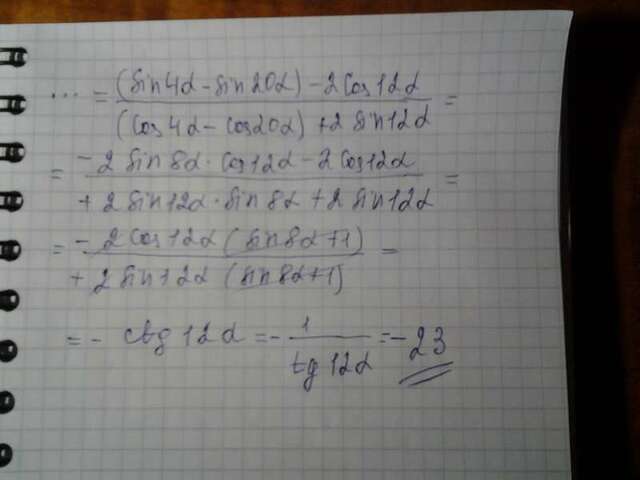 ... = (sin4α - sin20α) - 2cos12α / (cos4α - cos20α) + 2sin12α =
= -2sin8α · cos12α - 2cos12α / +2sin12α · sin8α + 2sin12α =
= -2cos12α (sin8α+1) / +2sin12α (sin8α+1) =
= - ctg12α = - 1 / tg12α = -23